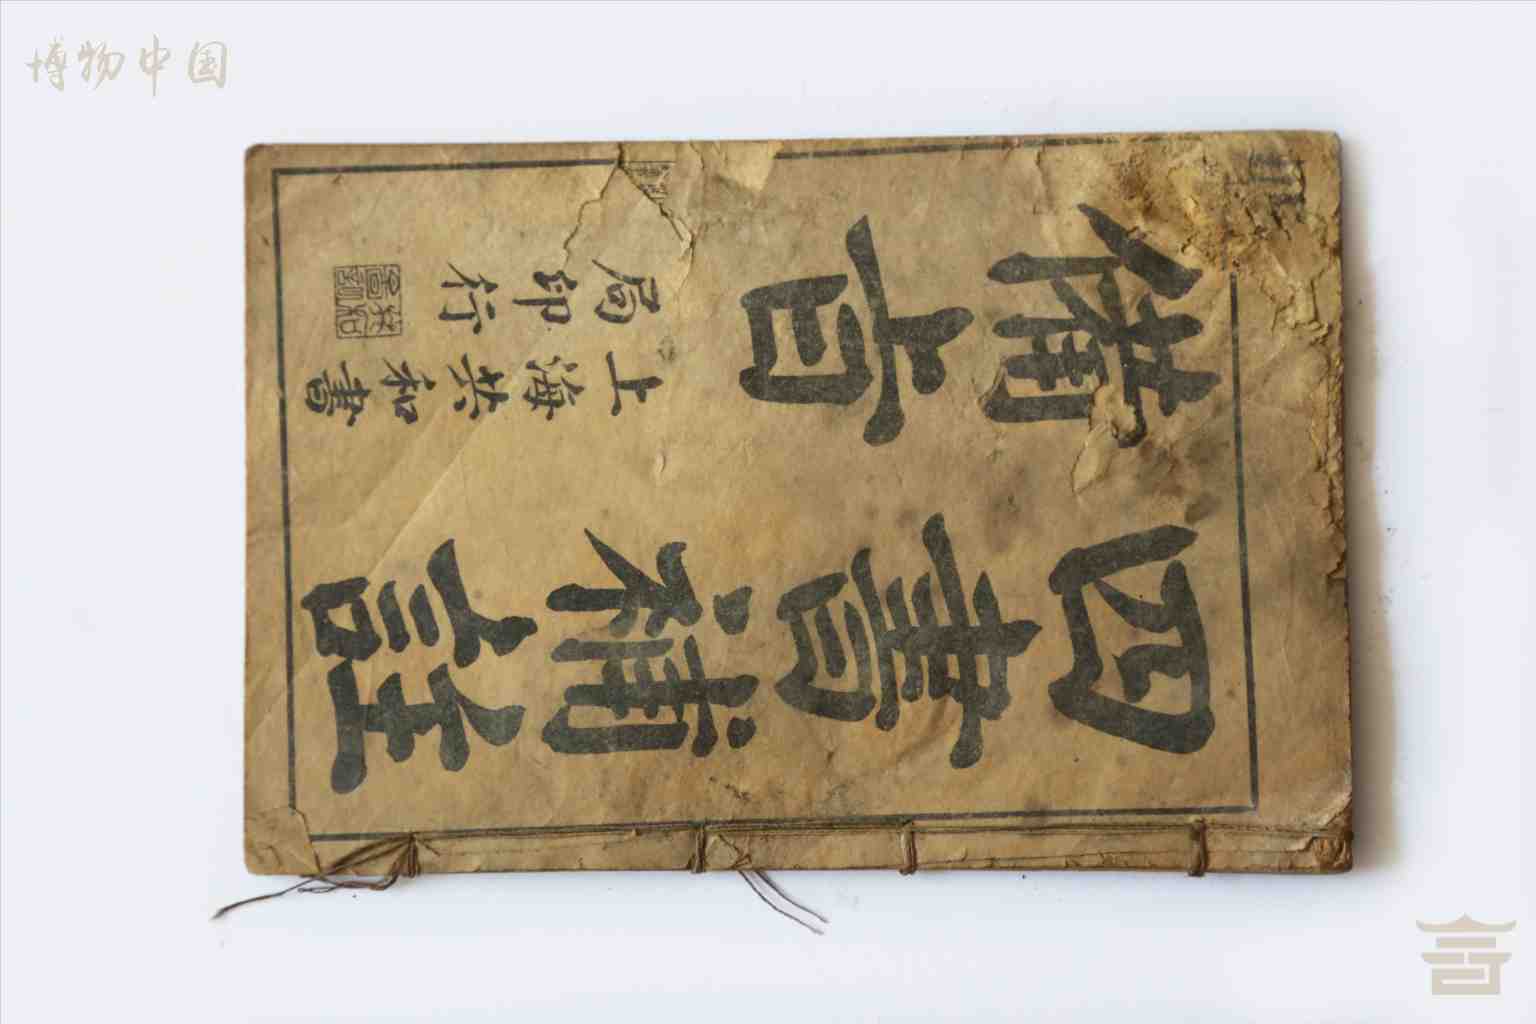 博物中国
四書補註
備旨
上海共和書
局印行